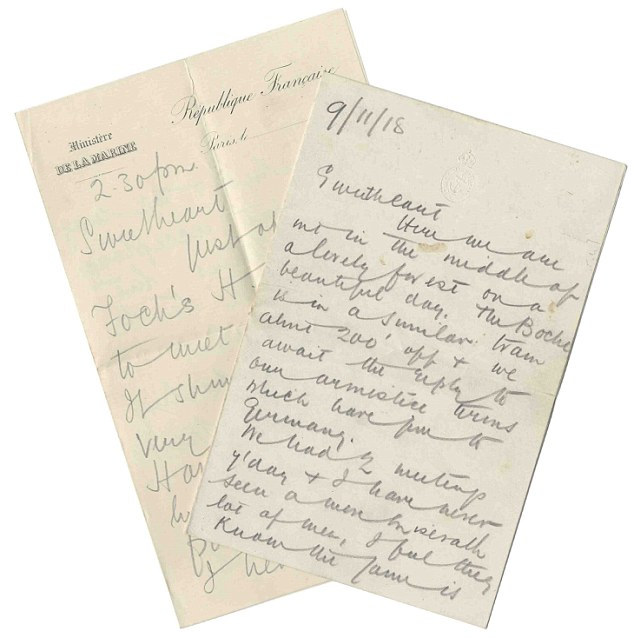 République Française
Ministère
DE LA MARINE
Paris, le
2.30 pm
Sweetheart
Just
Foch's H
to meet
It
very
Ha
9/11/18
Sweetheart
Here we are
in the middle of
a lovely forest on a
beautiful day. The Boche
is in a similar train
about 200' off & we
await the reply to
our armistice terms
which have gone to
Germany.
We had 2 meetings
y'day & I have never
seen a more miserable
lot of men, I feel they
know the game is